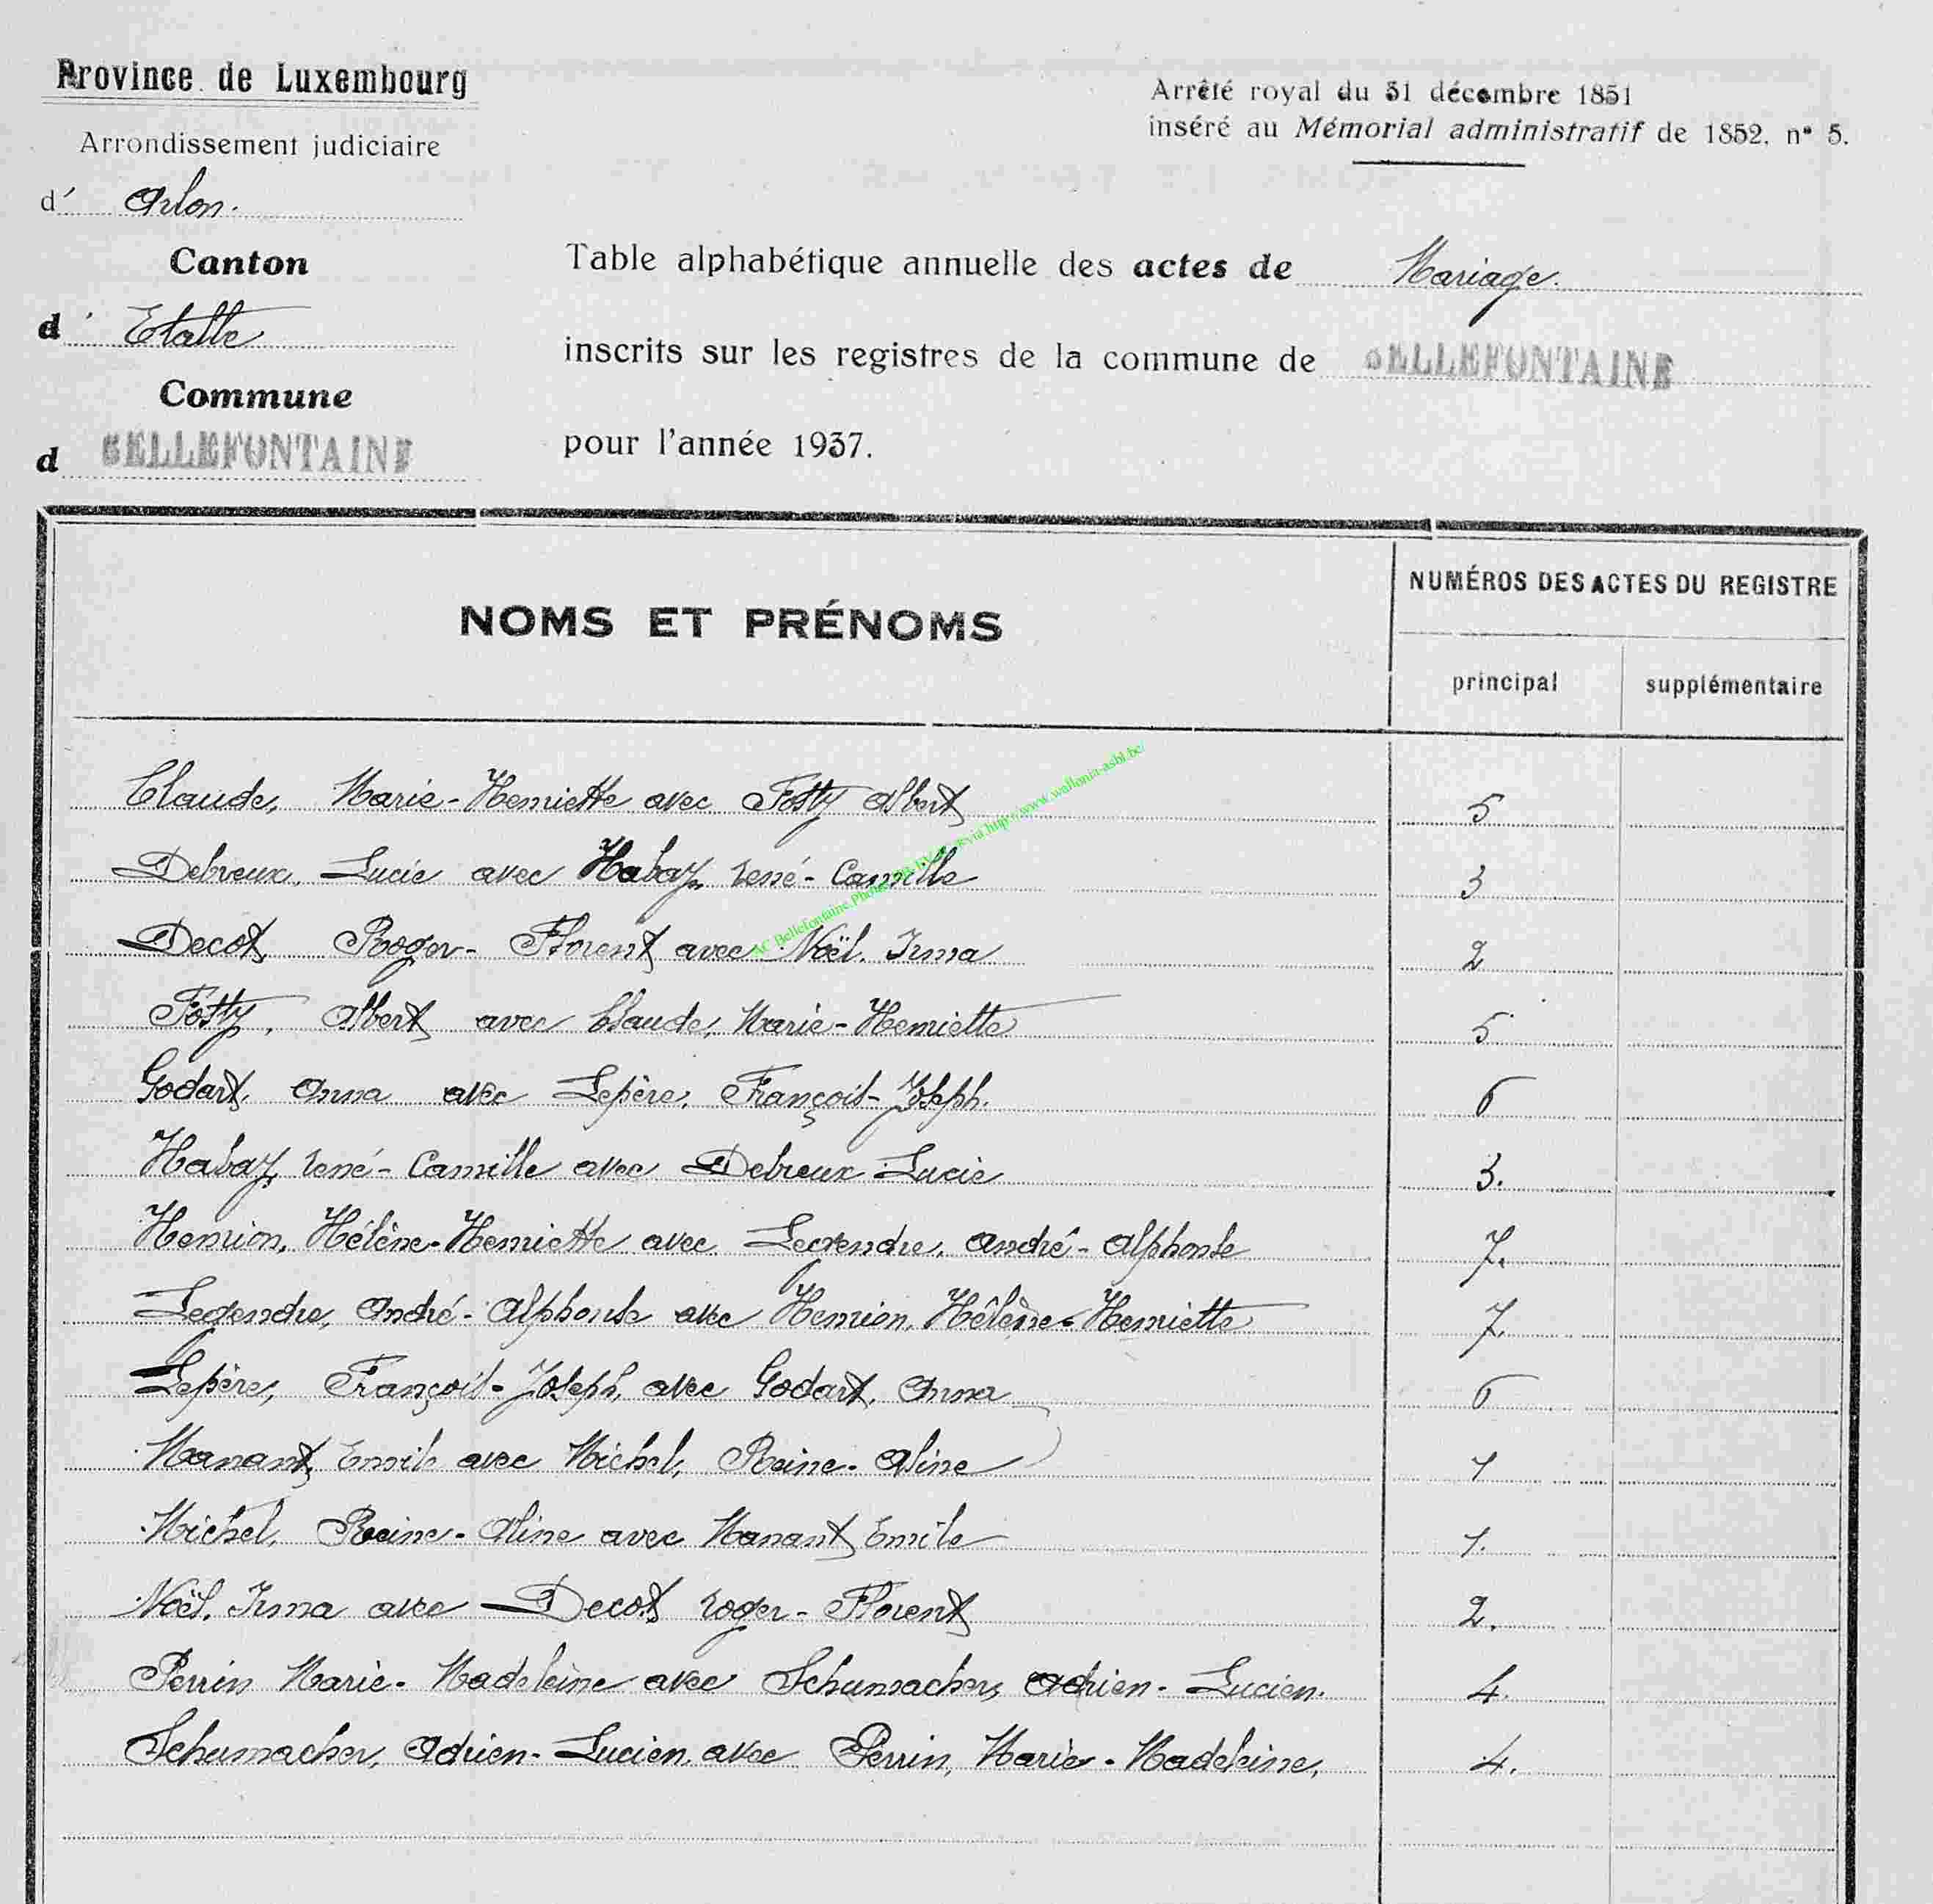 Province de Luxembourg
Arrondissement judiciaire
d' Arlon.
Canton
d' Etalle
Commune
d BELLEFONTAINE
Arrêté royal du 31 décembre 1851
inséré au Mémorial administratif de 1852, n° 5.
Table alphabétique annuelle des actes de Mariage.
inscrits sur les registres de la commune de BELLEFONTAINE
pour l'année 1937.
NOMS ET PRÉNOMS
NUMÉROS DES ACTES DU REGISTRE
principal supplémentaire
Claude, Marie-Henriette avec Fosty Albert 5
Debreux, Lucie avec Habay, René-Camille 3
Decot, Roger-Florent avec Noël, Irma 2
Fosty, Albert avec Claude, Marie-Henriette 5
Godart, Anna avec Lepère, François-Joseph. 6
Habay, René-Camille avec Debreux Lucie 3.
Henrion, Hélène-Henriette avec Legendre, André-Alphonse 7.
Legendre, André-Alphonse avec Henrion, Hélène-Henriette 7.
Lepère, François-Joseph, avec Godart, Anna 6
Manant, Emile avec Michel, Reine-Aline 1
Michel, Reine-Aline avec Manant, Emile 1.
Noël, Irma avec Decot, Roger-Florent 2.
Perrin Marie-Madeleine avec Schumacher, Adrien-Lucien. 4.
Schumacher, Adrien-Lucien, avec Perrin, Marie-Madeleine, 4.
AC Bellefontaine via http://www.wallonia-asbl.be/